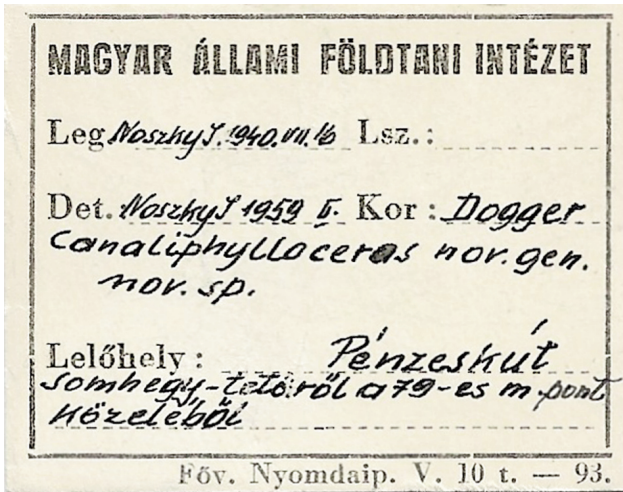 MAGYAR ÁLLAMI FÖLDTANI INTÉZET
Leg. Noszky J. 1940.VII.16 Lsz.:
Det. Noszky J 1959 II. Kor: Dogger
Canaliphylloceras nov. gen.
nov. sp.
Lelőhely: Pénzeskút
Somhegy-tetőről a 79-es m. pont
közeléből
Főv. Nyomdaip. V. 10 t. — 93.